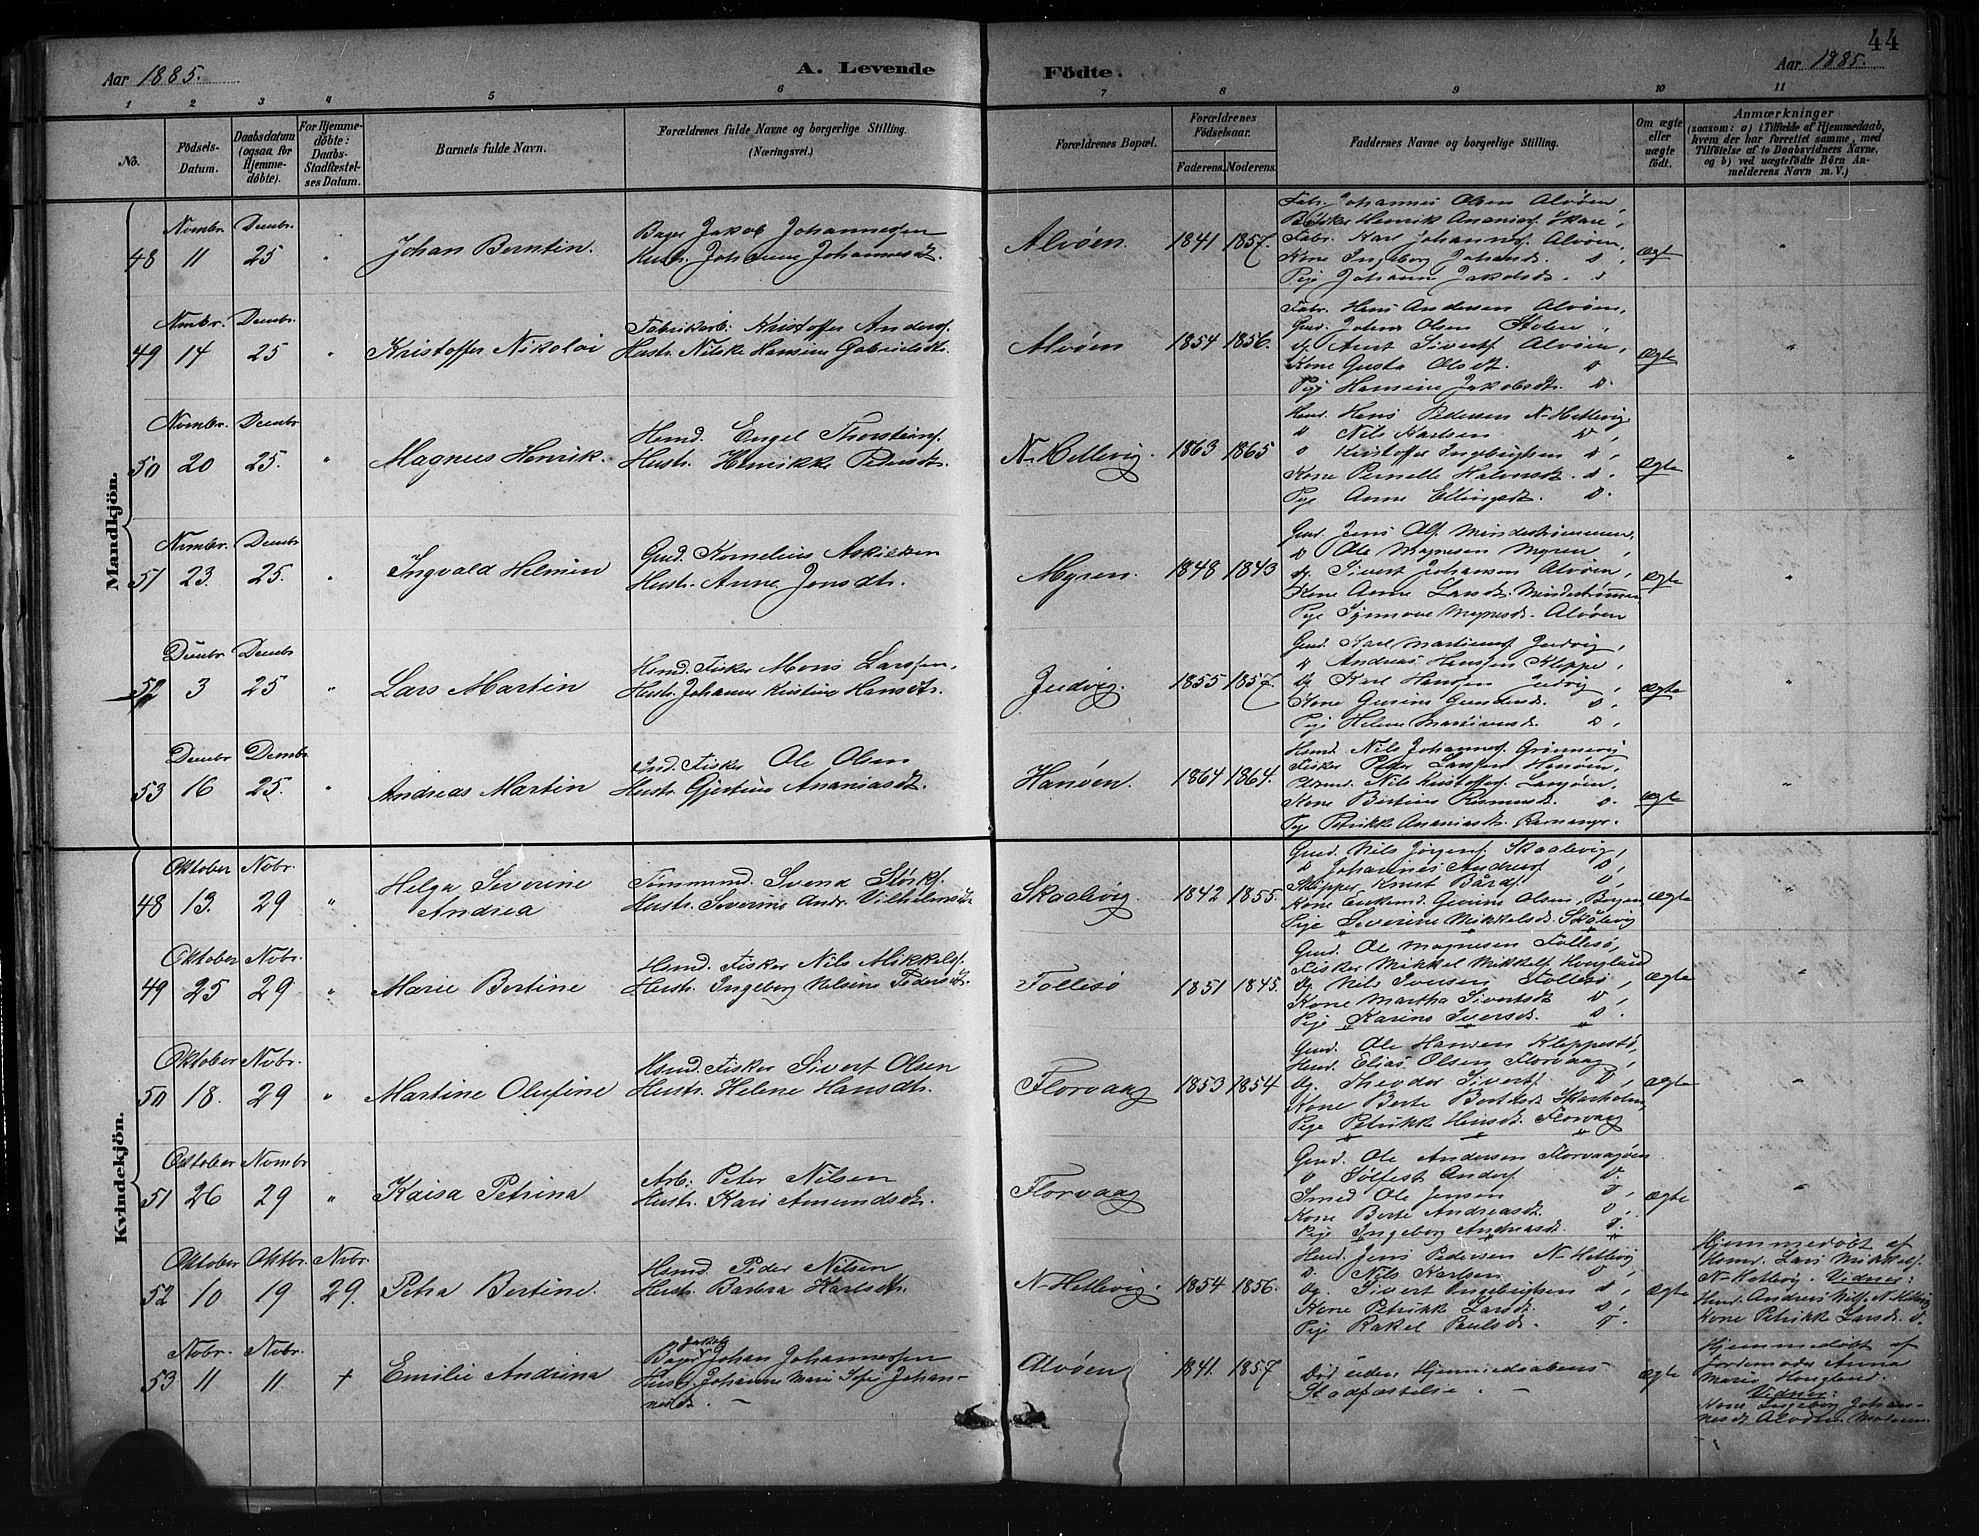 44
Aar 1885. A. Levende Födte. Aar 1885.
1 2 3 4 5 6 7 8 9 10 11
No.
Födsels-Datum.
Daabsdatum (ogsaa for Hjemme-döbte).
For Hjemme-döbte: Daabs-Stadfæstel-ses Datum.
Barnets fulde Navn.
Forældrenes fulde Navne og borgerlige Stilling. (Næringsvei.)
Forældrenes Bopæl.
Forældrenes Födselsaar.
Faderens. Moderens.
Faddernes Navne og borgerlige Stilling.
Om ægte eller uægte födt.
Anmærkninger
(saasom: a) i Tilfælde af Hjemmedaab,
hvem der har forrettet samme, med
Tilföielse af to Daabsvidners Navne,
og b) ved uægtefödte Börn An-
melderens Navn m. V.)
Mandkjön.
Novmbr. Decmbr.
48 11 25 " Johan Berntin.
Bager Jakob Johannessen
Hustr. Johanne Johannesdt.
Alvøen. 1841 1857.
Fabr. Johannes Olsen Alvøen,
Bødker Henrik Ananiasf. Skare,
Fabr. Karl Johannesf. Alvøen,
Kone Ingeborg Johansd.
Pige Johanne Jakobsd.
ægte "
Novmbr. Decmbr.
49 14 25 " Kristoffer Nikolai
Fabrikarb. Kristoffer Andersf.
Hustr. Nilske Hansine Gabrielsdt.
Alvøen 1854 1856.
Fabr. Hans Andersen Alvøen,
Gmd. Johans Olsen Stolen,
Ug. Arnt Sivertsf. Alvøen,
Kone Gusta Olsdt.
Pige Hansine Jakobsdt.
ægte "
Novmbr. Decmbr
50 20 25. " Magnus Henrik.
Hsmd. Engel Thorsteinsf.
Hustr. Henrikke Pedersdt.
N-Hetlevig. 1863 1865
Hmd. Hans Pedersen N-Hetlevig
Nils Karlsen
Kristoffer Ingebrigtsen
Kone Pernelle Halvorsdt.
Pige Anne Ellingsdt.
ægte "
Novmbr. Decmbr
51 23. 25. " Ingvald Helmin
Gmd. Kornelius Askildsen
Hustr. Anne Jonsdtr.
Myren. 1848 1843
Gmd. Jens Olsf. Mindestrømmen,
Ole Magnesen Myren,
Ug. Sivert Johansen Alvøen,
Kone Anne Larsdt. Mindestrømmen
Pige Synnove Magnesdt. Alvøen
ægte "
Decmbr Decmbr
52 3 25 " Lars Martin
Hsmd. Fisker Mons Larssen,
Hustr. Johanne Kristine Hansdtr.
Judvig. 1855 1857.
Gmd. Karl Martinusf. Judvig,
Andreas Hanssen Kleppe,
Ug. Karl Hanssen Judvig,
Kone Gurine
Pige Helene Martinusd.
ægte "
Decmbr Decmbr
53 16 25. " Andreas Martin
Fisker Ole Olsen
Hustr. Gjertine Ananiasdt.
Hanøen. 1864 1864.
Hsmd. Nils Johannesf. Grønnevig
Fisker Peder Larssen Hanøen,
Nils Kristoffersf.
Kone Bertine Rasmusdt.
Pige Petrikke Ananiasdt. Ravnanger.
ægte "
Kvindekjön.
Oktober Nobr.
48 13. 29 " Helga Severine Andrea
Tømmermd. Svend Størksf.
Hustr. Severine Andr. Vilhelmsdt.
Skaalevig. 1842 1855.
Gmd. Nils Jørgensf. Skaalevig,
Johannes Andreasf.
Skipper Knut Bårdsf.
Kone Gurine Olsen, Bergen
Pige Severine Mikkelsdt. Skålevig
ægte "
Oktober Nobr.
49 25 29 " Marie Bertine
Hsmd. Fisker Nils Mikkelsf.
Hustr. Ingeborg Nilsine Pedersdt.
Follesø 1851 1845.
Gmd. Ole Magnesen Follesø,
Fisker Mikkel Mikkelsf. Hougland
Ug. Nils Iversen Follesø,
Kone Martha Sivertsdt.
Pige Karine Iversdt.
ægte "
Oktober Nobr.
50 18. 29 " Martine Olufine
Hsmd. Fisker Sivert Olsen
Hustr. Helene Hansdtr.
Florvaag 1853 1854
Gmd. Ole Hansen Kleppestø,
Hmd. Elias Olsen Florvaag,
Ug. Theodor Sivertsf.
Kone Berte
Pige Petrikke Hansdt. Florvaag
ægte "
Oktober Novmbr
51 26 29 " Kaisa Petrina
Arb. Peter Nilsen
Hustr. Kari Amundsdtr.
Florvaag
Gmd. Ole Andersen Florvaagøen
Sølfest Andersf.
Smed Ole Jensen
Kone Berte Andreasdt.
Pige Ingeborg Andreasdt.
ægte "
Oktober Oktbr. Nobr.
52 10 19 29. Petra Bertine.
Hsmd. Peder Nilsen
Hustr. Barbra Karlsdtr.
N-Hetlevig. 1854 1856.
Hmd. Jens Pedersen N-Hetlevig
Nils Karlsen
Ug. Sivert Ingebrigtsen
Kone Petrikke Larsdt.
Pige Rakel Paulsdt.
ægte
Hjemmedøbt af
Hsmd. Lars Mikkelsf.
N-Hetlevig. Vidner:
Hmd. Andreas Nilsf. N-Hetlevig
Kone Petrikke Larsdt.
Nobr. Nobr.
53 11 11. + Emilie Andrina
Jakob
Bager Johan Johannessen
Hustr. Johanne Marie Sofie Johan-
nesdt. —
Alvøen 1841. 1857
Død uden Hjemmedaabens-
Stadfæstelse. —
ægte
Hjemmedøbt af
Jordemoder Anna
Marie Hougland.
Vidner:
Kone Ingeborg Johan-
nesdt. Alvøen. Moderen